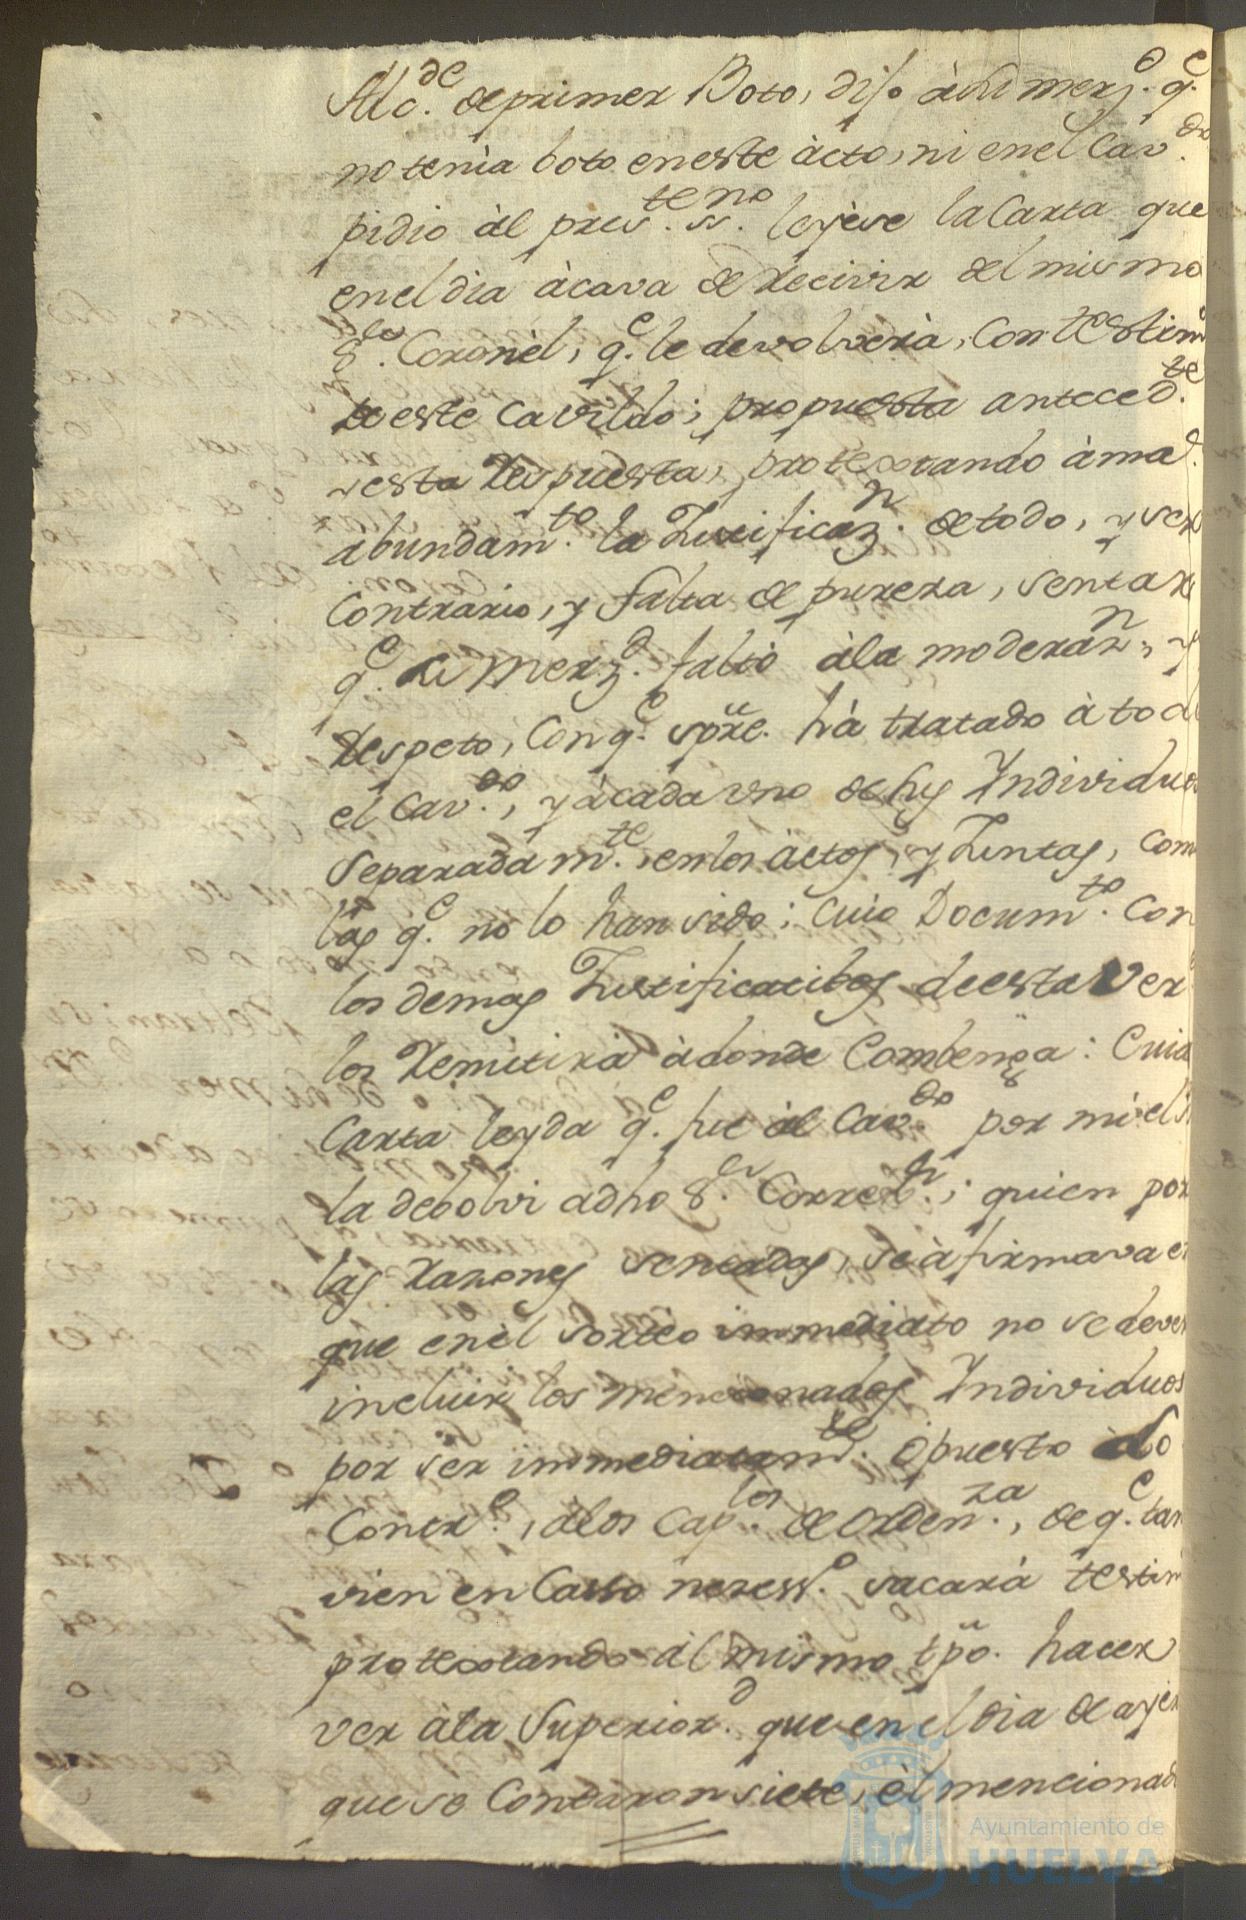 Alc.de de primer Boto, dijo à su merz.d q.e
no tenìa boto en este àcto, ni en el Cav.do
pidio àl pres.te ss.no leyèse la Carta que
en el dia àcava de Recivir del mismo
S.or Coronèl, q.e le devolverà, Con testim
de este Cavildo; propuesta anteced.te
y esta Respuesta, protextando à ma.r
abundam.to la Justificaz.n de todo, y ser
Contrario, y falta de pureza, sentar
q.e su Merz.d faltò à la moderaz.n, y
Respeto, Con q.e spre. hà tratado à todo
el Cav.do, y à cada uno de sus Individuos
Separadam.te, en los àctos, y Juntas, Com
las q.e no lo han sido; Cuio Docum.to Con
los demas Justificatibos de esta Ver
los Remitirà à donde Combenga: Cuia
Carta leyda q.e fue àl Cav.do por mi el
la debolvi a dho S.or Correx.r; quien por
las Razones sentadas, se àfirmava en
que en èl sortèo immediato no se deven
incluir los mencionados Individuos
por ser immediatam.te òpuesto àlo
Contr.o, à los Cap.los de Orden.za, de q.e tan
vien en Caso neress.o sacarà testim
protextando àl mismo tpo. hacer
ver à la Superior.d que en el dia de ayer
que se Contaron siete, èl mencionad
Ayuntamiento de
HUELVA